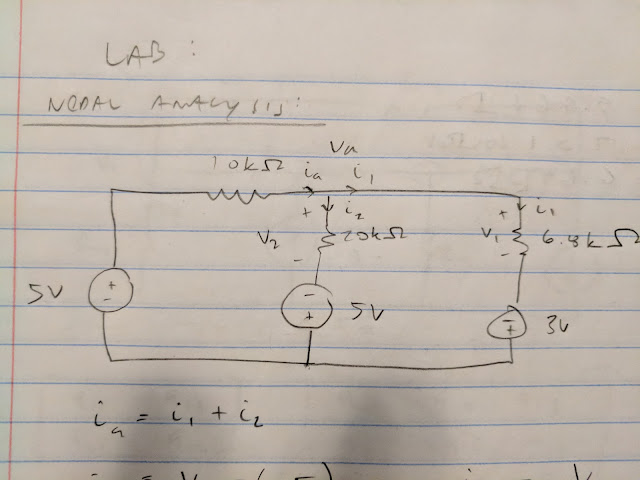 LAB:
NODAL ANALYSIS:
Va
10kΩ ia i1
+ i2 + i1
V2 20kΩ V1 6.8kΩ
- -
+ - +
5V - + 5V - + 3V
ia = i1 + i2